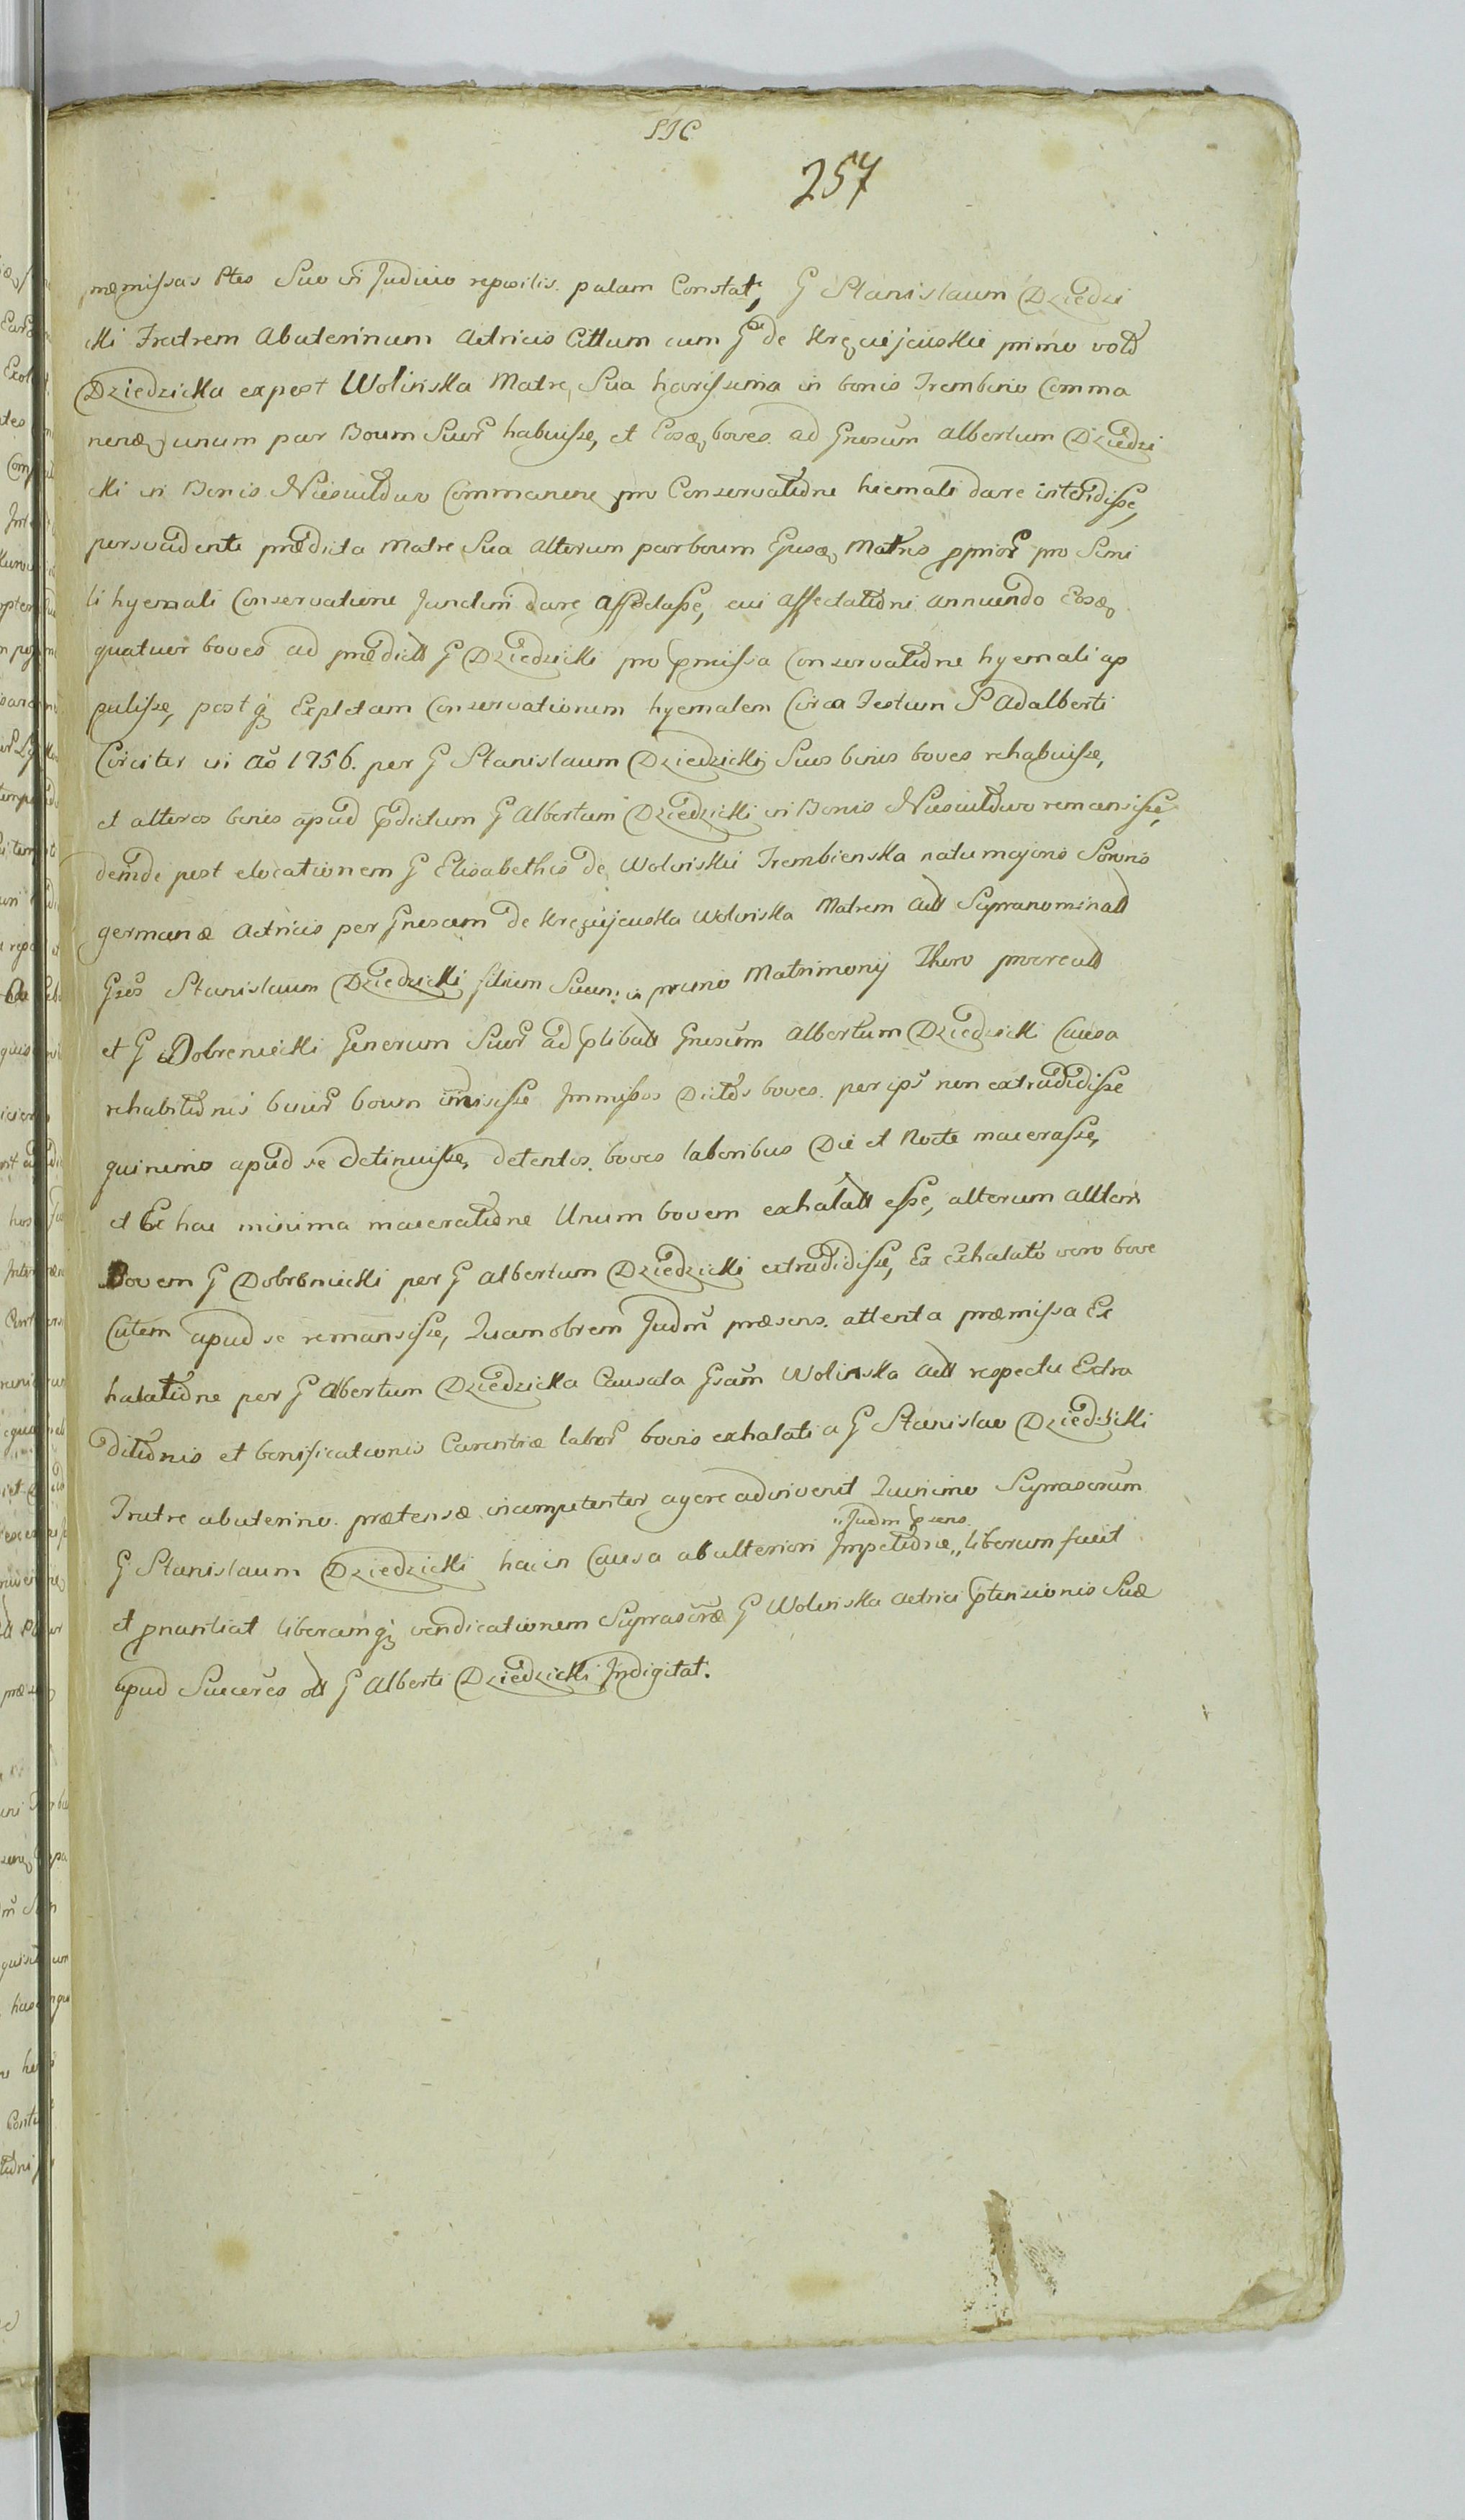 SIC
257
præmissas Ptes Suo in Judicio repositis palam Constat, G Stanislaum Dziedzi
cki Fratrem Abuterinum Actricis Cittum cum G de primo voto
Dziedzicka expost Wolinska Matre Sua in bonis Trembino Comma
nen unum par Boum Suor habuisse, et Eosd boves ad Gnosum Albertum Dziedzi
cki in Bonis Commanene pro Conservatione hiemali dare intendisse,
persvadente prædicta Matre Sua Alterum par boum Ejusd Matris pprior pro Simi
li hyemali Conservatione Junctim dare Affectasse, cui Affectationi annuendo Eosd
quatuor boves ad prædictt G Dziedzicki pro pmissa Conservatione hyemali ap
pulisse, post q Expletam Conservationem hyemalem Circa Festum S Adalberti
Circiter in Ao 1756. per G Stanislaum Dziedzicki Suos binos boves rehabuisse,
et alteros binos apud pdictum G Albertum Dziedzicki in Bonis remansisse,
deinde post elocationem G Elisabethis de Wolinskie Trembienska natu majoris Sororis
germanæ Actricis per Gnosam de Wolinska Matrem Act Supranominatt
Gsos Stanislaum Dziedzicki filium Suum in primo Matrimonij Thoro procreatt
et G Dobreniecki Generum Suor ad plibatt Gnosum Albertum Dziedzicki Causa
rehabitionis binor boum imisisse Immissos Dictos boves per ips non extradidisse
quinimo apud se detinuisse, detentos boves laboribus Die et Nocte macerasse,
et Ex hac minima maceratione Unum bovem exhalatt esse, alterum Alttem
Bovem G Dobreniecki per G Albertum Dziedzicki extradidisse, Ex Exhalato vero bove
Cutem apud se remansisse, Quamobrem Judm præsens attenta præmissa Ex
halatione per G Albertum Dziedzicka Causata Gsam Wolinska Act respectu Extra
ditionis et bonificationis Carentiæ labor bovis exhalati a G Stanislao Dziedzicki
Fratre abuterino prætensæ incompetenter agere adinvenit Quinimo Suprascrum
G Stanislaum Dziedzicki hac in Causa ab ulteriori Impetitne „ Judm psens „ liberum facit
et pnuntiat liberamq vendicationem Suprascræ G Wolinska Actrici ptensionis Suæ
apud Succeres ott G Alberti Dziedzicki Indigitat.